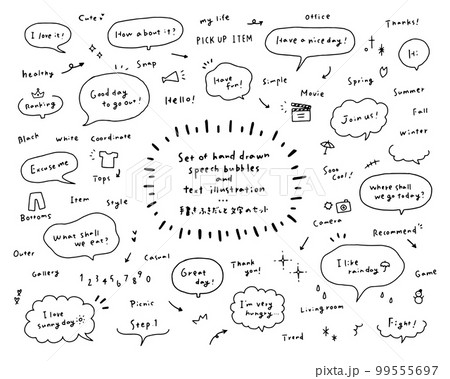 I love it!
Cute♡
How about it?
my life
PICK UP ITEM
Office
Have a nice day!
Thanks!
Hi
healthy
Snap
Ranking
Good day
to go out!
Hello!
Have
fun!
Simple
Movie
Spring
Summer
Fall
Winter
Join us!
Black
White
Coordinate
Excuse me
Tops
Set of hand drawn
speech bubbles
and
text illustration
手書きふきだしと文字のセット
Sooo
Cool!
Where shall
we go today?
Bottoms
Item
Style
Camera
Recommend
What shall
we eat?
Outer
Gallery
1 2 3 4 5 6 7 8 9 0
Casual
Great
day!
Thank
you!
I like
rain day
Game
I love
sunny day
Picnic
Step 1
I'm very
hungry...
Living room
Trend
Fight!
PIXTA
99555697